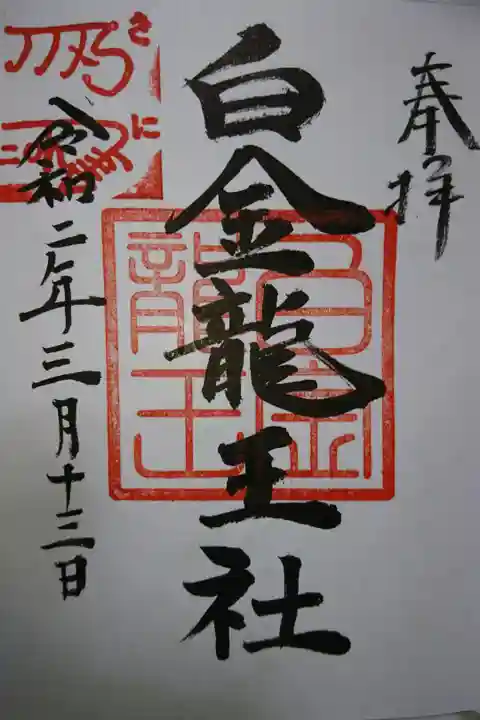 奉拝
白金龍王社
白金
龍王
令和二年三月十三日